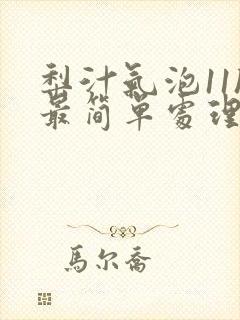 梨汁氣泡11
最简單處理
馬尔喬